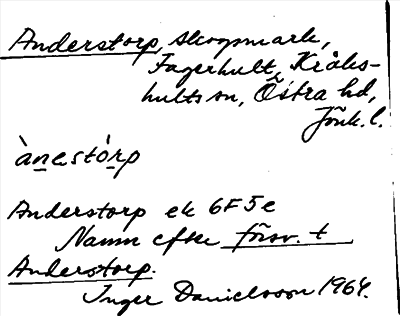 Anderstorp, skogsmark,
Fagerhult, Kråks-
hults sn, Östra hd,
Jönk. l.
ànestórp
Anderstorp ek 6F5e
Namn efter försv. t
Anderstorp.
Inger Danielsson 1964.